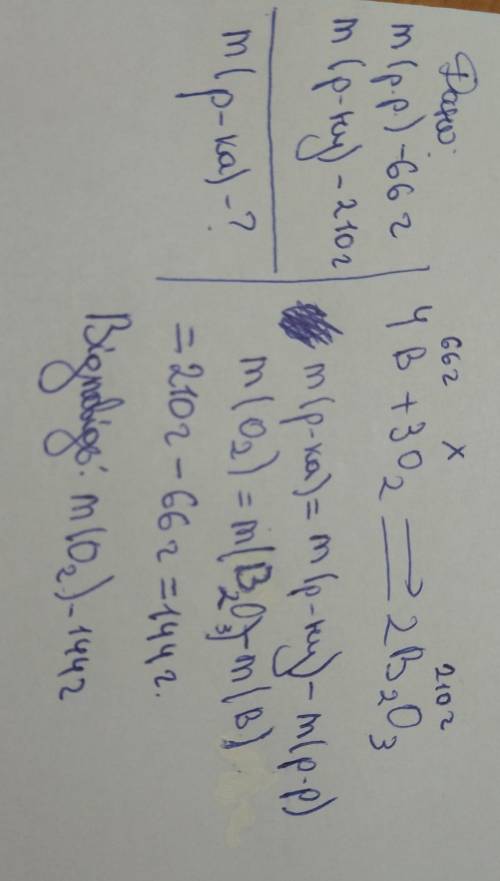 Дано:
m(р.р) - 66 г
m(р-ну) - 210 г
m(р-ка) - ?
66 г x 210 г
4B + 3O2 ⟹ 2B2O3
m(р-ка) = m(р-ну) - m(р-р)
m(O2) = m(B2O3) - m(B)
= 210 г - 66 г = 144 г.
Відповідь: m(O2) - 144 г